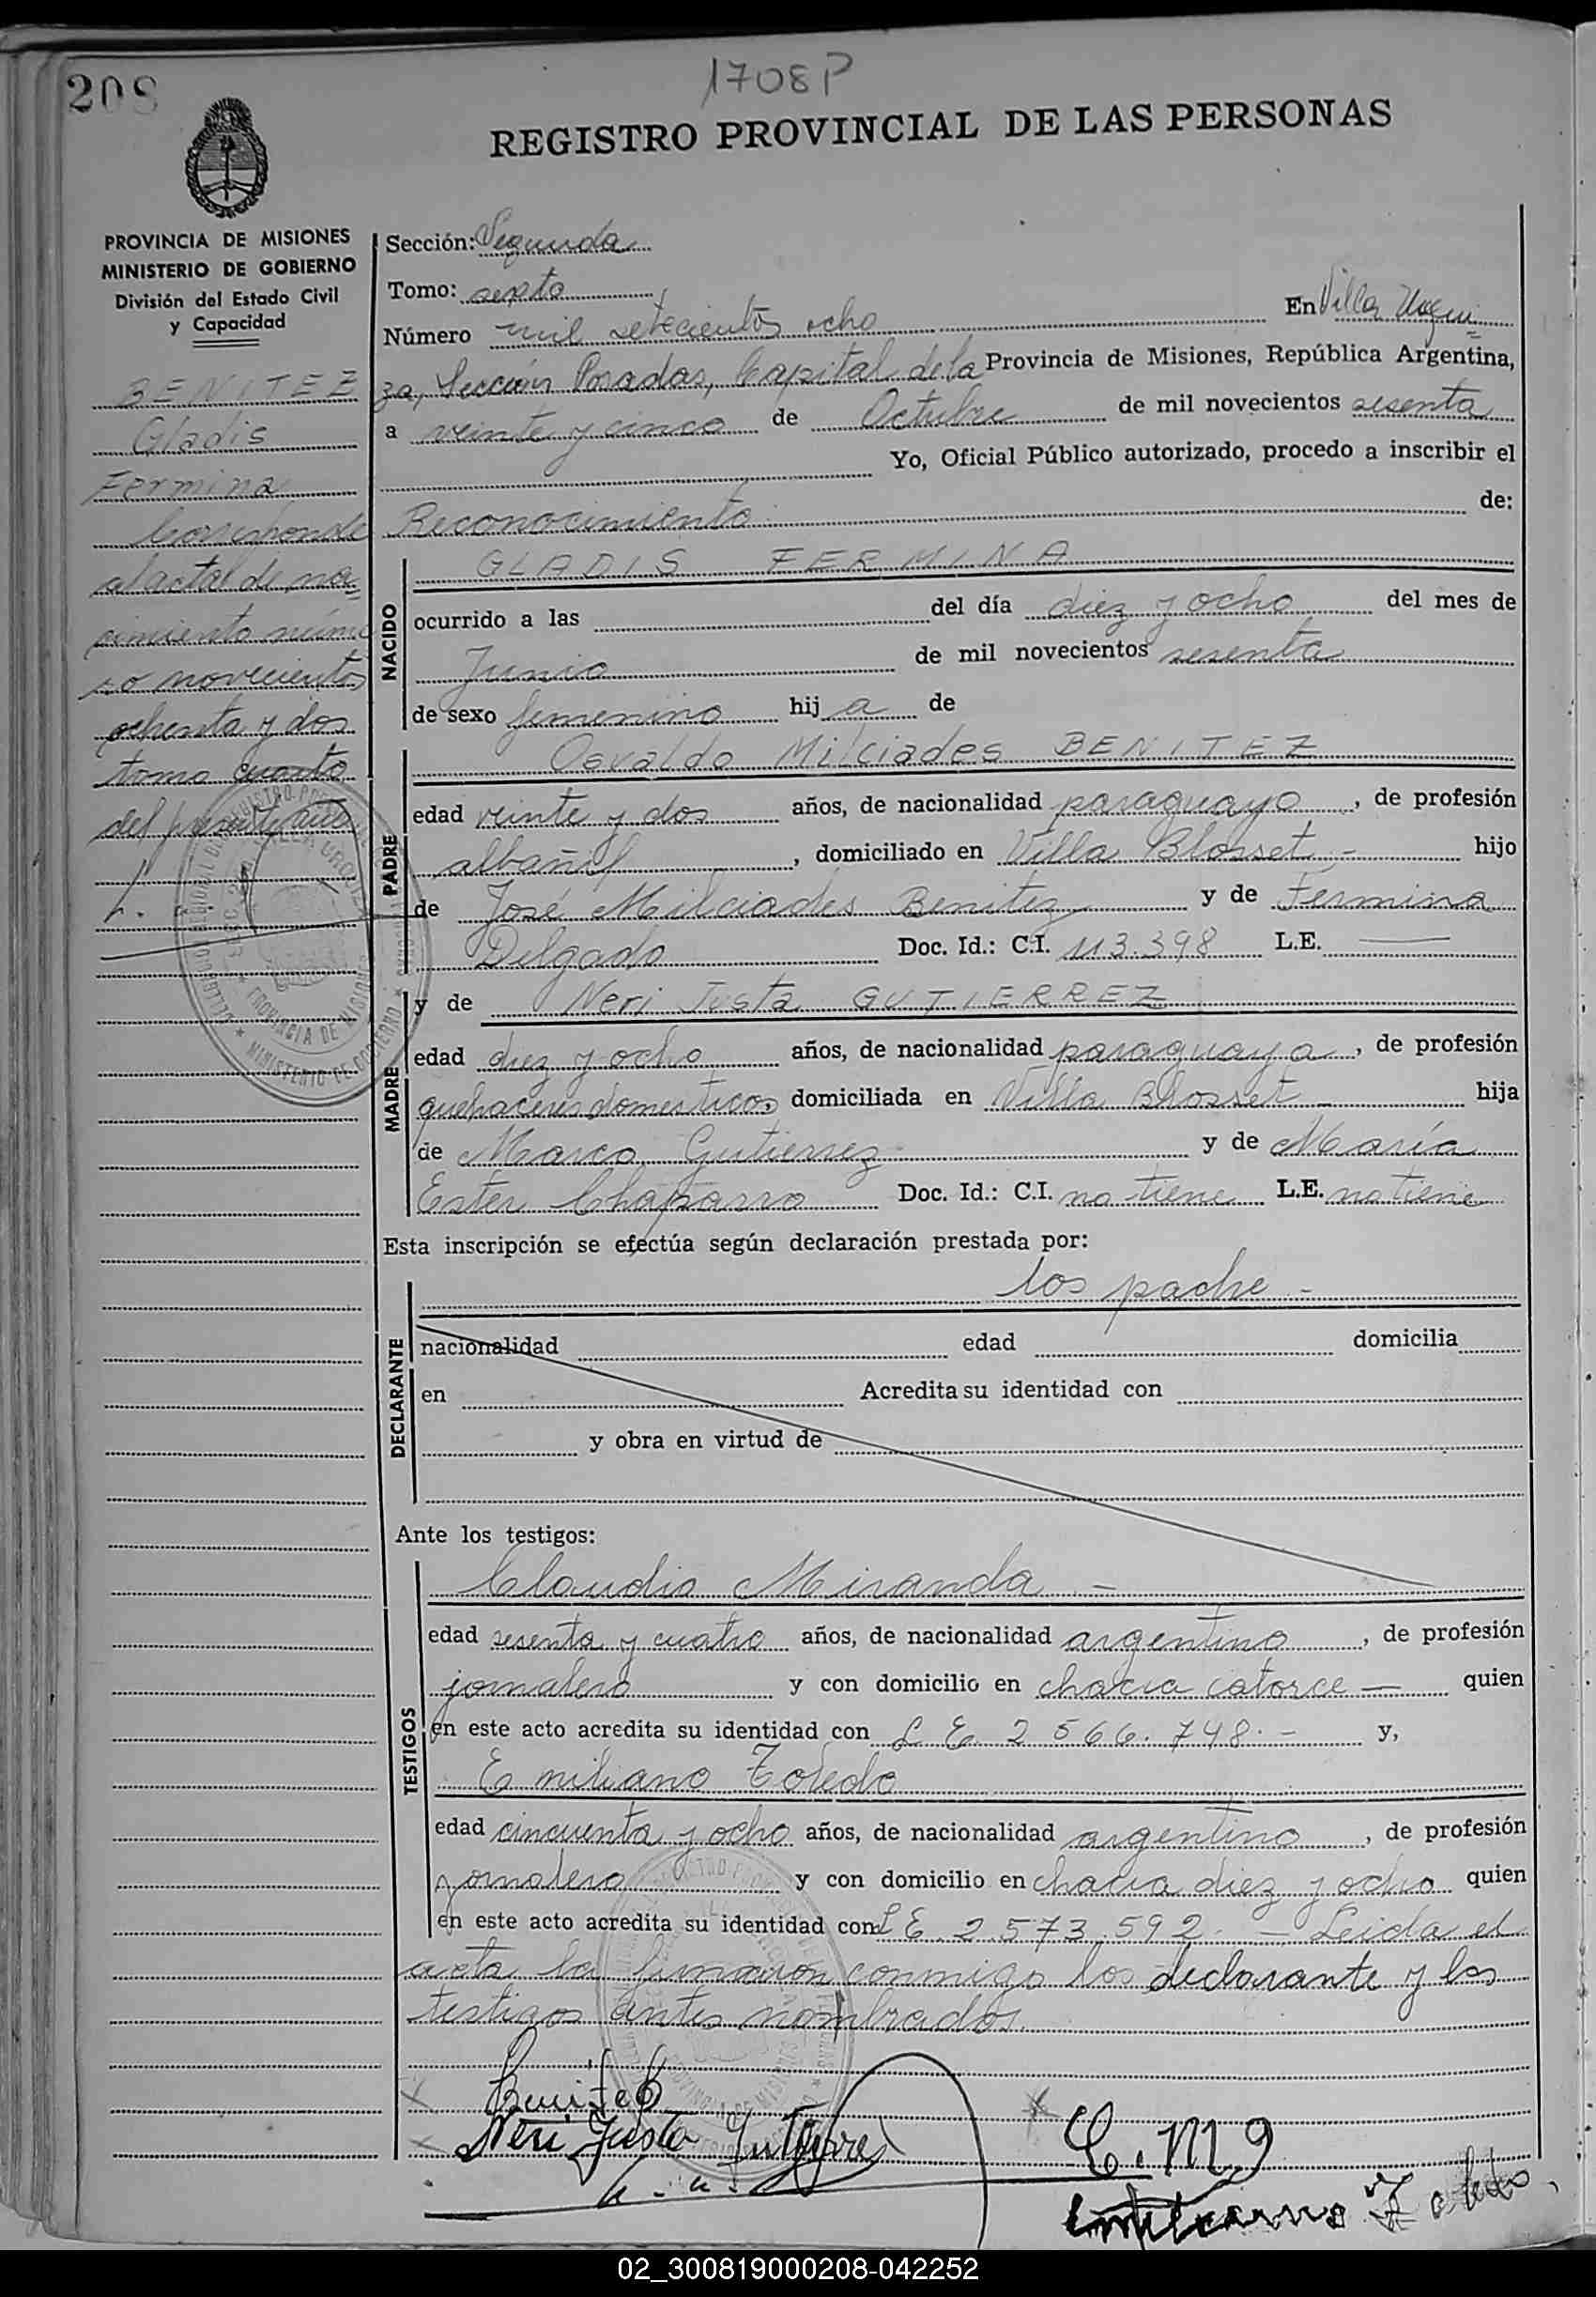 208
1708P
REGISTRO PROVINCIAL DE LAS PERSONAS
PROVINCIA DE MISIONES
MINISTERIO DE GOBIERNO
División del Estado Civil
y Capacidad
BENITEZ
Gladis
Fermina
Corresponde
al acta de na=
cimiento núme
ro novecientos
ochenta y dos
tomo cuarto
del presente año
Sección: Segunda
Tomo: sexto
Número mil setecientos ocho En Villa Urqui=
za, Sección Posadas, Capital de la Provincia de Misiones, República Argentina,
a veinte y cinco de Octubre de mil novecientos sesenta
Yo, Oficial Público autorizado, procedo a inscribir el
Reconocimiento de:
NACIDO
GLADIS FERMINA
ocurrido a las del día diez y ocho del mes de
Junio de mil novecientos sesenta
de sexo femenino hij a de
PADRE
Osvaldo Milciades BENITEZ
edad veinte y dos años, de nacionalidad paraguayo, de profesión
albañil, domiciliado en Villa Blosset - hijo
de José Milciades Benitez y de Fermina
Delgado Doc. Id.: C.I. 113.398 L.E. —
MADRE
y de Neri Justa GUTIERREZ
edad diez y ocho años, de nacionalidad paraguaya, de profesión
quehaceres domesticos, domiciliada en Villa Blosset - hija
de Marco Gutierrez y de María
Ester Chaparro Doc. Id.: C.I. no tiene L.E. no tiene
Esta inscripción se efectúa según declaración prestada por:
DECLARANTE
los padre -
nacionalidad edad domicilia
en Acredita su identidad con
y obra en virtud de
Ante los testigos:
TESTIGOS
Claudio Miranda -
edad sesenta y cuatro años, de nacionalidad argentino, de profesión
jornalero y con domicilio en chacra catorce — quien
en este acto acredita su identidad con L E 2 566.748. - y,
Emiliano Toledo
edad cincuenta y ocho años, de nacionalidad argentino, de profesión
jornalero y con domicilio en chacra diez y ocho quien
en este acto acredita su identidad con L E 2.573.592. - Leida el
acta la firmaron conmigo los declarante y los
testigos antes nombrados.
Benitez
Neri Justa Gutierrez
C. M
Emiliano Toledo
02_300819000208-042252